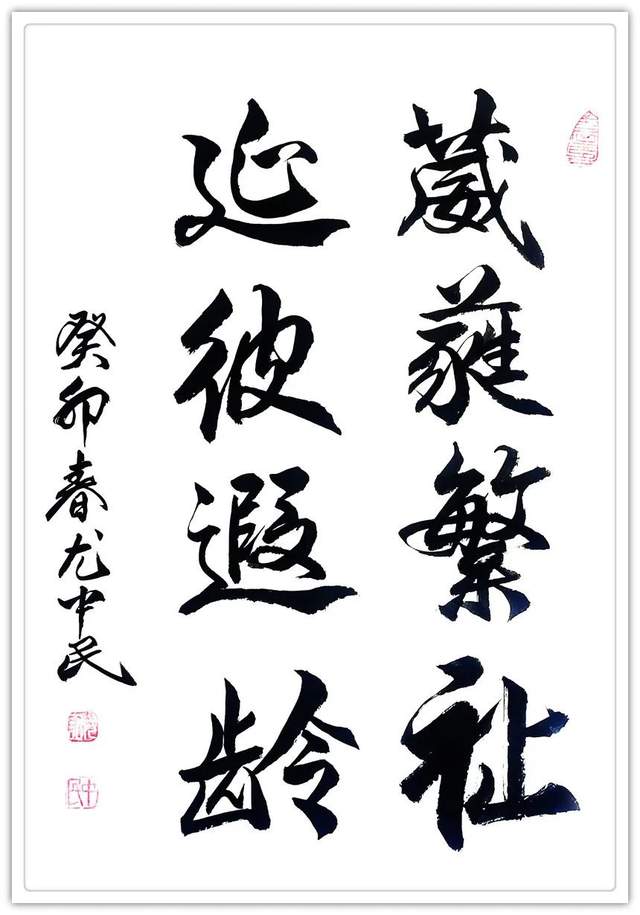 葳蕤繁祉
延彼遐龄
癸卯春尤中民